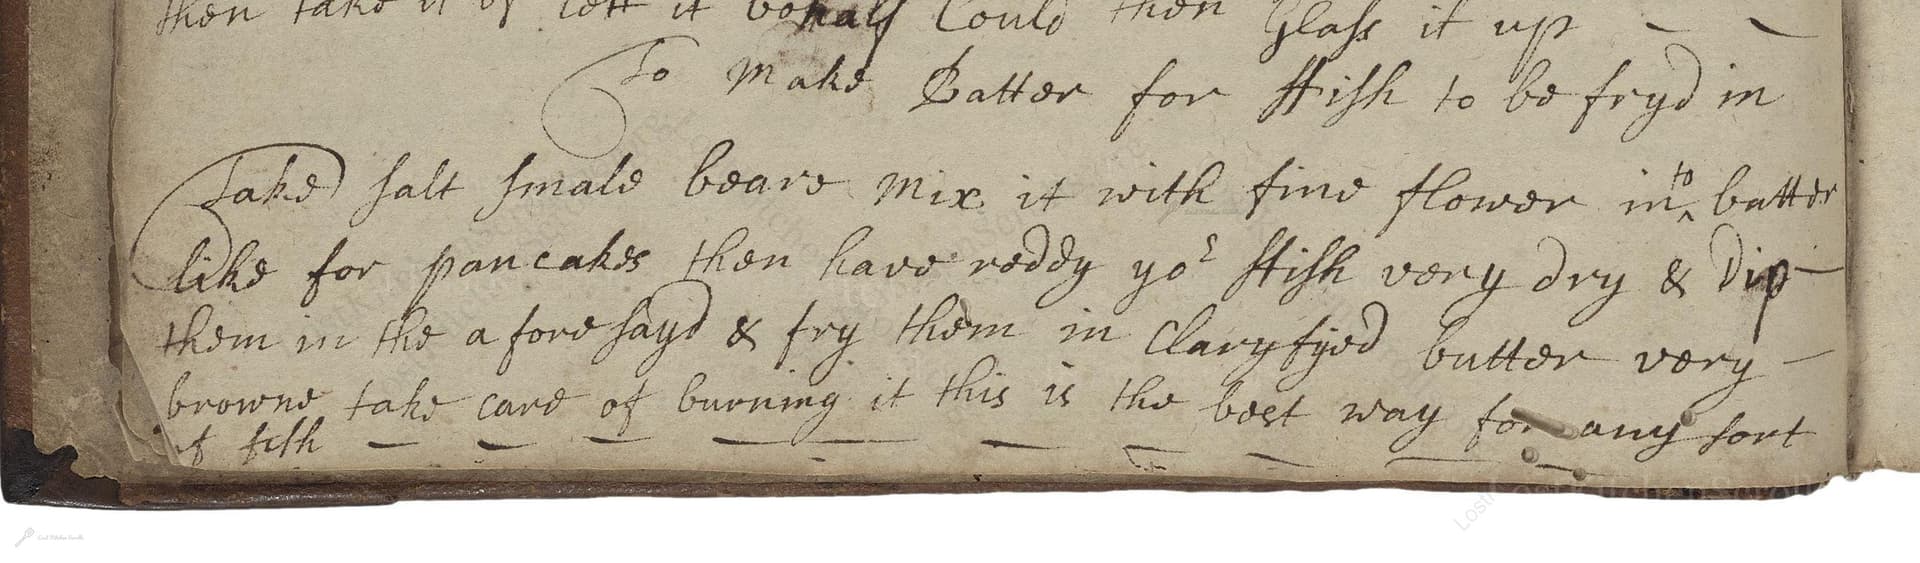 then take it of lett it be half Could then Glass it up
To Make Batter for ffish to be fryd in
Take salt smale beare Mix it with fine flower in^to batter
like for pancakes then have reddy yor ffish very dry & Dip
them in the aforesayd & fry them in Claryfyed butter very
browne take care of burning it this is the best way for any sort
of fish